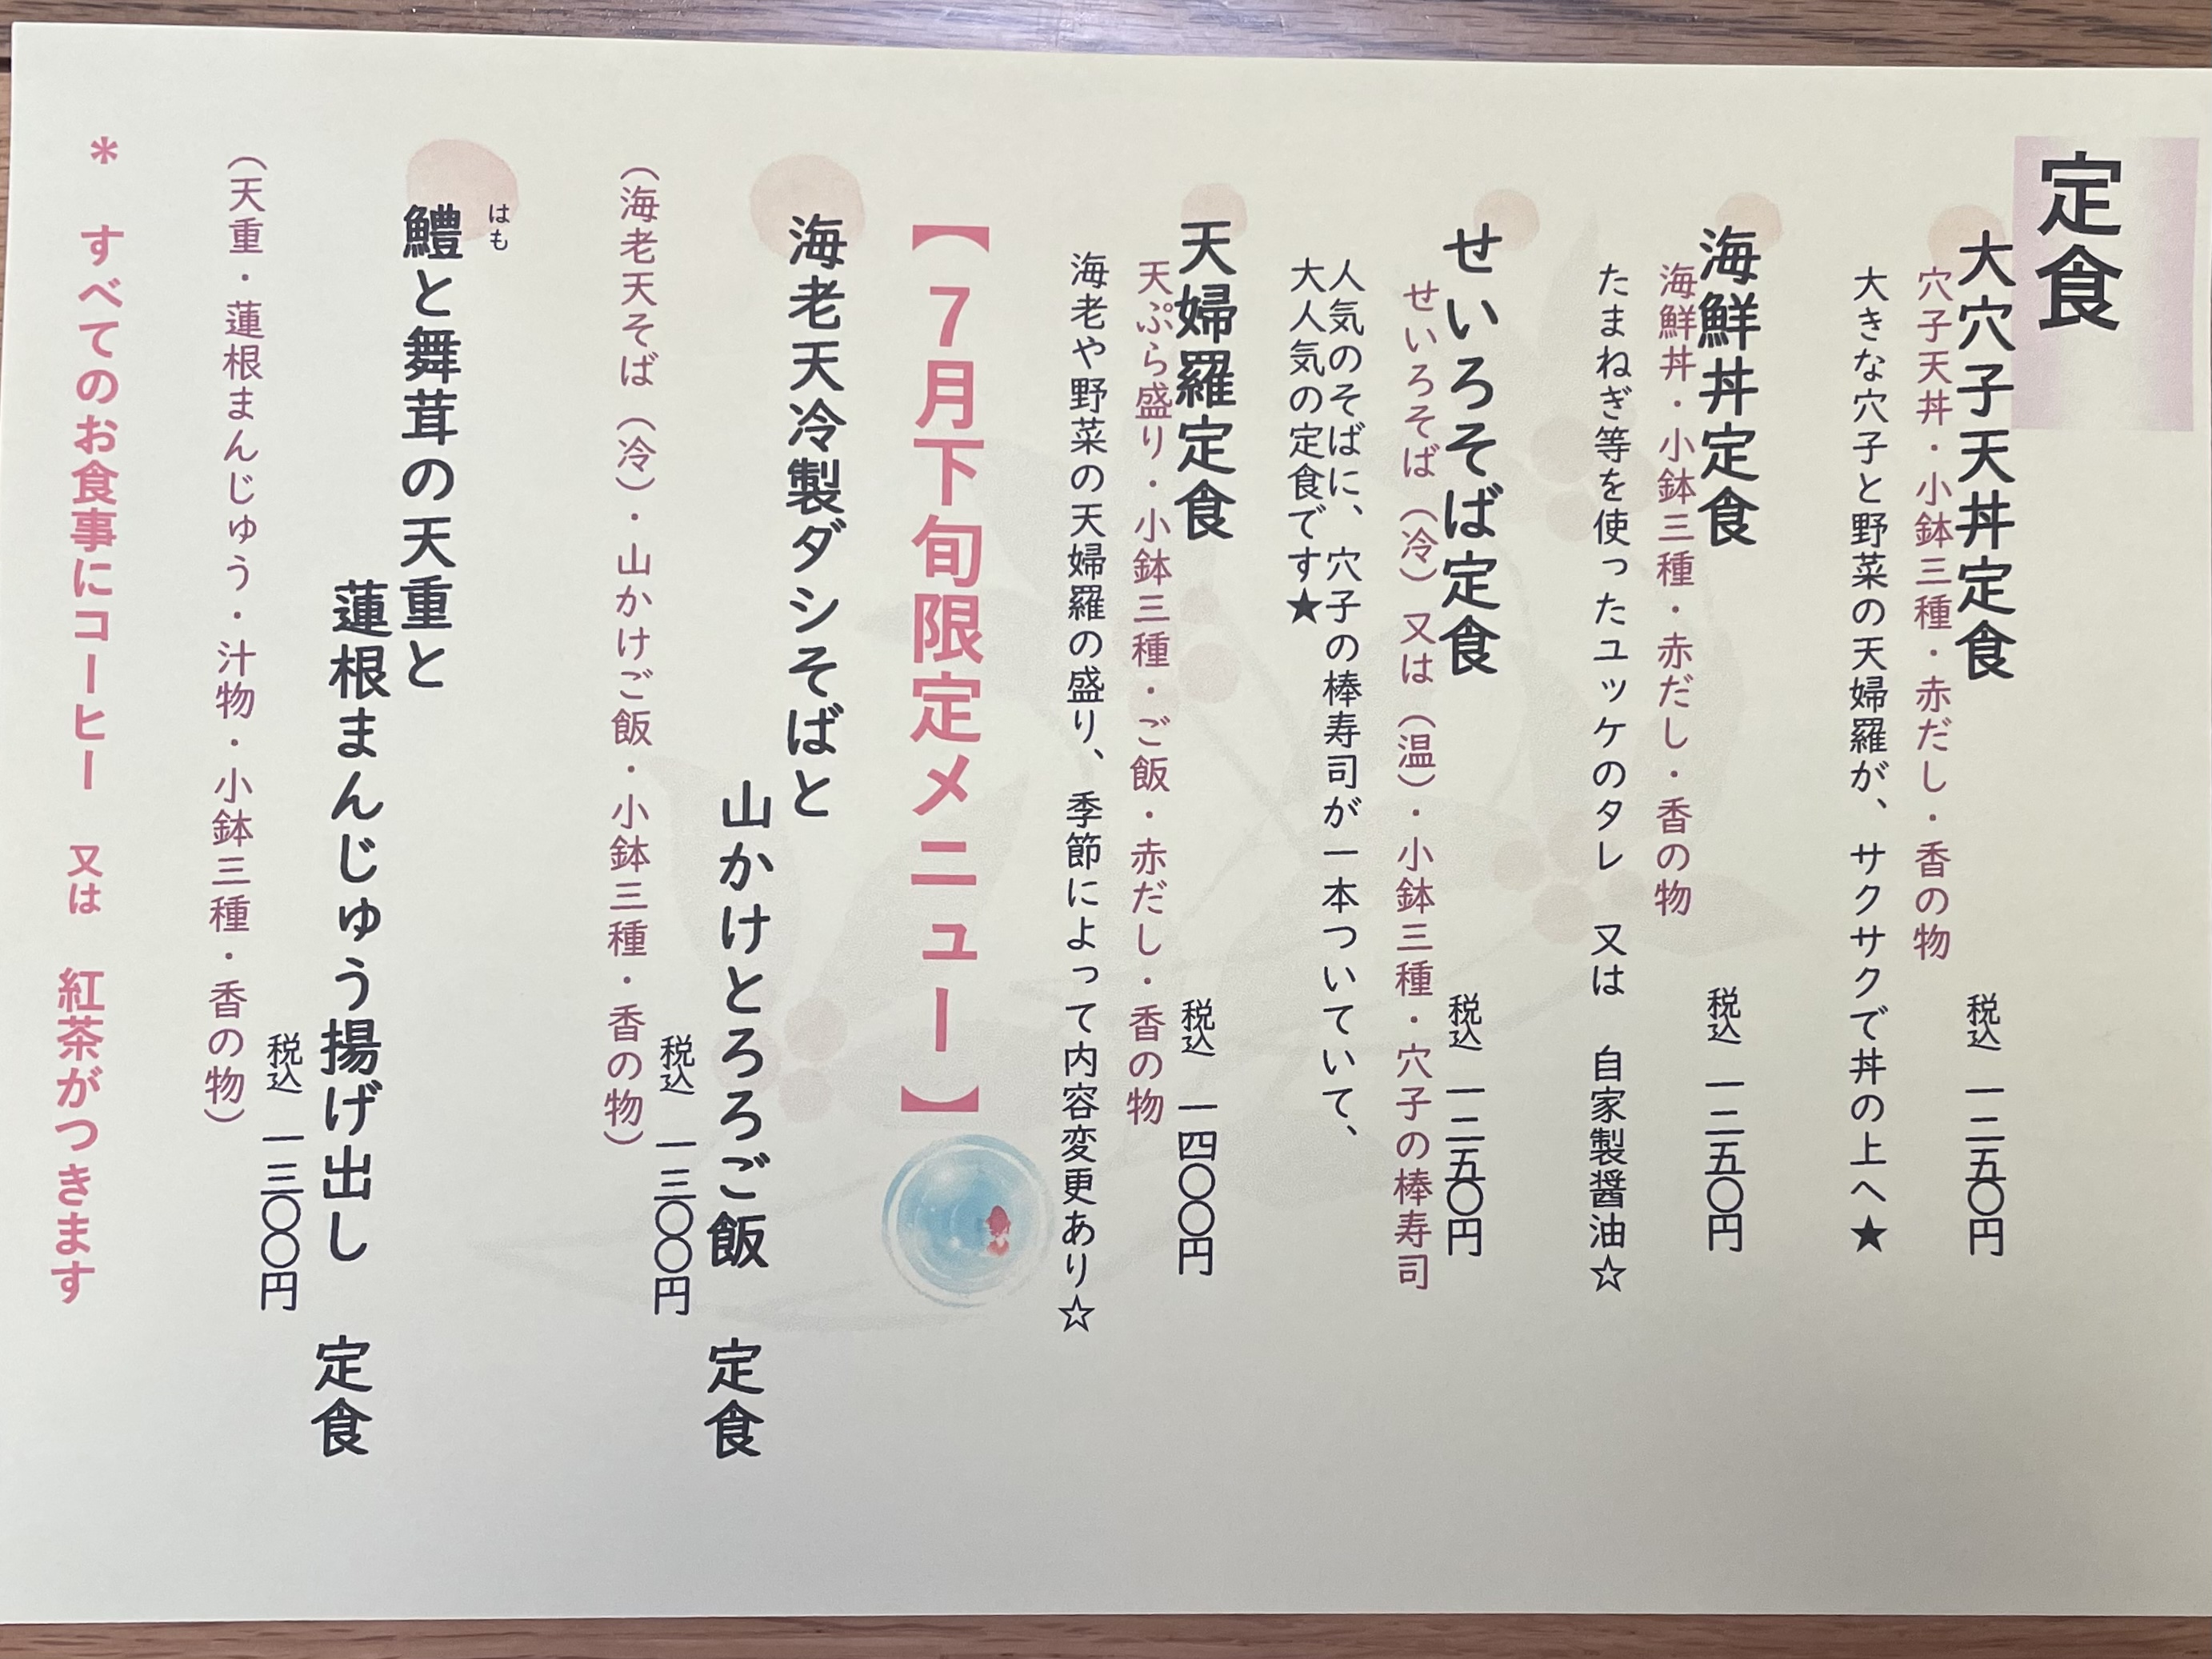 定食
大穴子天丼定食
税込 一二五〇円
穴子天丼・小鉢三種・赤だし・香の物
大きな穴子と野菜の天婦羅が、サクサクで丼の上へ★
海鮮丼定食
税込 一二五〇円
海鮮丼・小鉢三種・赤だし・香の物
たまねぎ等を使ったユッケのタレ 又は 自家製醤油☆
せいろそば定食
税込 一二五〇円
せいろそば（冷）又は（温）・小鉢三種・穴子の棒寿司
人気のそばに、穴子の棒寿司が一本ついていて、
大人気の定食です★
天婦羅定食
税込 一四〇〇円
天ぷら盛り・小鉢三種・ご飯・赤だし・香の物
海老や野菜の天婦羅の盛り、季節によって内容変更あり☆
【７月下旬限定メニュー】
海老天冷製ダシそばと
山かけとろろご飯 定食
税込 一三〇〇円
（海老天そば（冷）・山かけご飯・小鉢三種・香の物）
はも
鱧と舞茸の天重と
蓮根まんじゅう揚げ出し 定食
税込 一三〇〇円
（天重・蓮根まんじゅう・汁物・小鉢三種・香の物）
＊ すべてのお食事にコーヒー 又は 紅茶がつきます